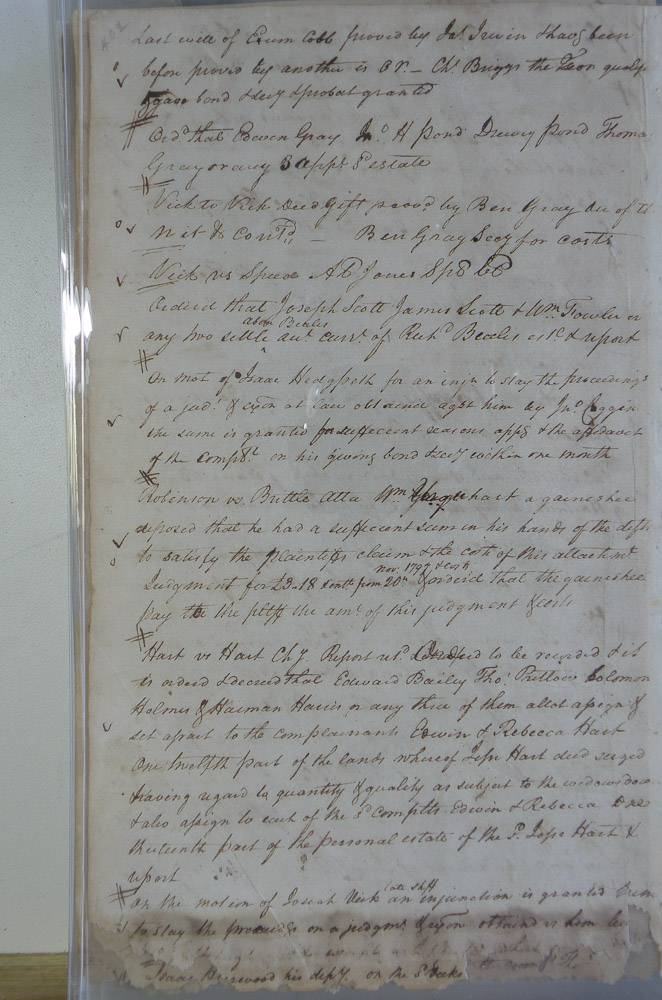 Last will of Exum Cobb proved by Jas. Irwin & havg been
before proved by another is OR - Chs. Briggs the Exor qualifd
& gave bond & secy & probat granted
Ord. that Edwin Gray Jno. H Pond Drewry Pond Thomas
Gray or any 3 appr. estate
Vick to Vick Deed Gift proved by Ben Gray one of the
wit & contd. - Ben Gray Secy for costs
Vick vs Speed AP Jones Spl bl
Ordered that Joseph Scott James Scott & Wm Fowler or
any two settle admr. curr. of Richd Beales estc & report
On mot of Isaac Hedgpeth for an injn to stay the proceedings
of a judt. & exon at law obtained agst him by Jno.
the same is granted for sufficient reasons appg & the affidavit
of the complt. on his giving bond & secy within one month
Robinson vs. Brittle Atta Wm Urquhart a garnishee
deposed that he had a sufficient sum in his hands of the deft
to satisfy the plaintiffs claim & the costs of this attachmt
nov. 1794 & costs
Judgment for £3.18 & intt from 20th & ordered that the garnishee
pay to the pltff the amt of this judgment & costs
Hart vs Hart Chy. Report retd. & Ordered to be recorded & it
is ordered & decreed that Edward Bailey Thos. Pretlow Solomon
Holmes & Harman Harris or any three of them allot assign &
set apart to the complainants Edwin & Rebecca Hart
One twelfth part of the lands whereof Jesse Hart died seized
having regard to quantity & quality as subject to the widows dower
& also assign to each of the sd Complts Edwin & Rebecca One
thirteenth part of the personal estate of the sd. Jesse Hart &
report
late Shff
On the motion of Josiah Vick an injunction is granted him
to stay the proceedgs on a judgmt. & exon obtaind vs him by
Isaac his depy. on the sd Vicks